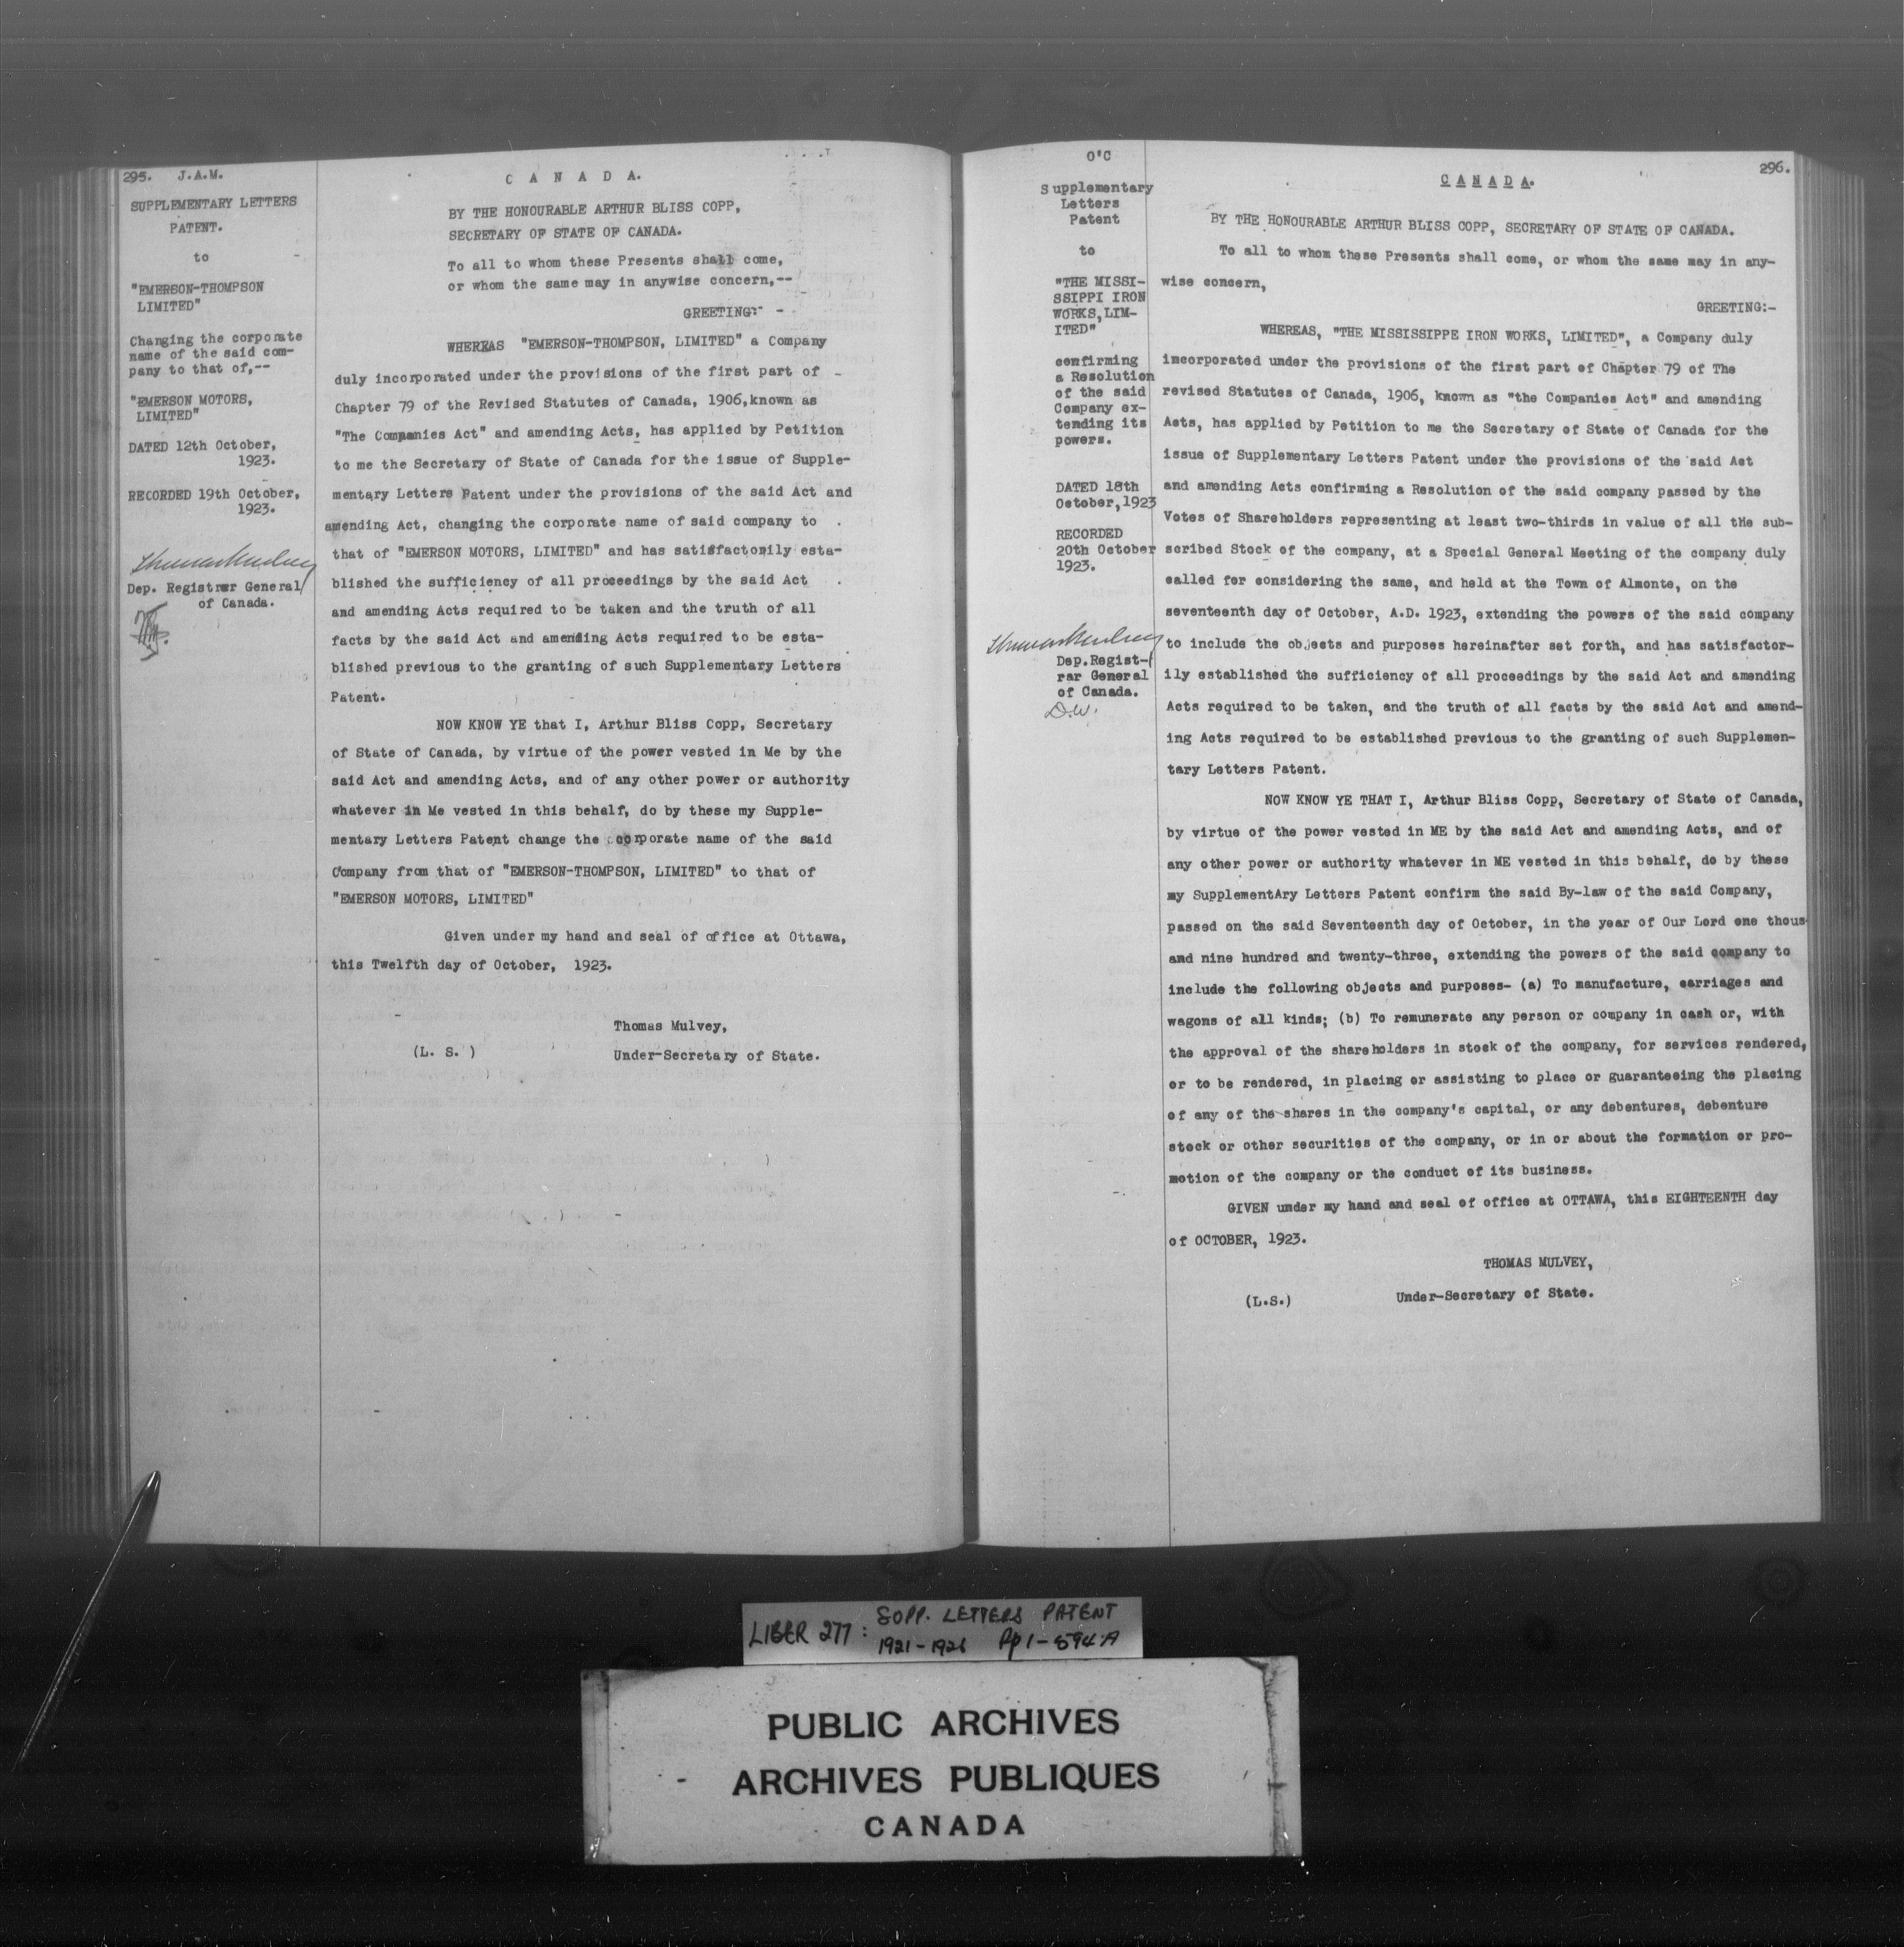 295. J.A.M.
SUPPLEMENTARY LETTERS
PATENT.
to
"EMERSON-THOMPSON
LIMITED"
Changing the corporate
name of the said com-
pany to that of,--
"EMERSON MOTORS,
LIMITED"
DATED 12th October,
1923.
RECORDED 19th October,
1923.
Thomas Mulvey
Dep. Registrar General
of Canada.
C A N A D A.
BY THE HONOURABLE ARTHUR BLISS COPP,
SECRETARY OF STATE OF CANADA.
To all to whom these Presents shall come,
or whom the same may in anywise concern,--
GREETING:-
WHEREAS "EMERSON-THOMPSON, LIMITED" a Company
duly incorporated under the provisions of the first part of
Chapter 79 of the Revised Statutes of Canada, 1906,known as
"The Companies Act" and amending Acts, has applied by Petition
to me the Secretary of State of Canada for the issue of Supple-
mentary Letters Patent under the provisions of the said Act and
amending Act, changing the corporate name of said company to
that of "EMERSON MOTORS, LIMITED" and has satisfactorily esta-
blished the sufficiency of all proceedings by the said Act
and amending Acts required to be taken and the truth of all
facts by the said Act and amending Acts required to be esta-
blished previous to the granting of such Supplementary Letters
Patent.
NOW KNOW YE that I, Arthur Bliss Copp, Secretary
of State of Canada, by virtue of the power vested in Me by the
said Act and amending Acts, and of any other power or authority
whatever in Me vested in this behalf, do by these my Supple-
mentary Letters Patent change the corporate name of the said
Company from that of "EMERSON-THOMPSON, LIMITED" to that of
"EMERSON MOTORS, LIMITED"
Given under my hand and seal of office at Ottawa,
this Twelfth day of October, 1923.
Thomas Mulvey,
(L. S. ) Under-Secretary of State.
O'C
Supplementary
Letters
Patent
to
"THE MISSI-
SSIPPI IRON
WORKS,LIM-
ITED"
confirming
a Resolution
of the said
Company ex-
tending its
powers.
DATED 18th
October,1923
RECORDED
20th October
1923.
Thomas Mulvey
Dep.Regist-
rar General
of Canada.
D.W.
296.
CANADA.
BY THE HONOURABLE ARTHUR BLISS COPP, SECRETARY OF STATE OF CANADA.
To all to whom these Presents shall come, or whom the same may in any-
wise concern,
GREETING:-
WHEREAS, "THE MISSISSIPPE IRON WORKS, LIMITED", a Company duly
incorporated under the provisions of the first part of Chapter 79 of The
revised Statutes of Canada, 1906, known as "the Companies Act" and amending
Acts, has applied by Petition to me the Secretary of State of Canada for the
issue of Supplementary Letters Patent under the provisions of the said Act
and amending Acts confirming a Resolution of the said company passed by the
Votes of Shareholders representing at least two-thirds in value of all the sub-
scribed Stock of the company, at a Special General Meeting of the company duly
called for considering the same, and held at the Town of Almonte, on the
seventeenth day of October, A.D. 1923, extending the powers of the said company
to include the objects and purposes hereinafter set forth, and has satisfactor-
ily established the sufficiency of all proceedings by the said Act and amending
Acts required to be taken, and the truth of all facts by the said Act and amend-
ing Acts required to be established previous to the granting of such Supplemen-
tary Letters Patent.
NOW KNOW YE THAT I, Arthur Bliss Copp, Secretary of State of Canada,
by virtue of the power vested in ME by the said Act and amending Acts, and of
any other power or authority whatever in ME vested in this behalf, do by these
my SupplementAry Letters Patent confirm the said By-law of the said Company,
passed on the said Seventeenth day of October, in the year of Our Lord one thous-
and nine hundred and twenty-three, extending the powers of the said company to
include the following objects and purposes- (a) To manufacture, carriages and
wagons of all kinds; (b) To remunerate any person or company in cash or, with
the approval of the shareholders in stock of the company, for services rendered,
or to be rendered, in placing or assisting to place or guaranteeing the placing
of any of the shares in the company's capital, or any debentures, debenture
stock or other securities of the company, or in or about the formation or pro-
motion of the company or the conduct of its business.
GIVEN under my hand and seal of office at OTTAWA, this EIGHTEENTH day
of OCTOBER, 1923.
THOMAS MULVEY,
(L.S.) Under-Secretary of State.
LIBER 277: SUPP. LETTERS PATENT
1921-1926 Pp 1-594A
PUBLIC ARCHIVES
ARCHIVES PUBLIQUES
CANADA